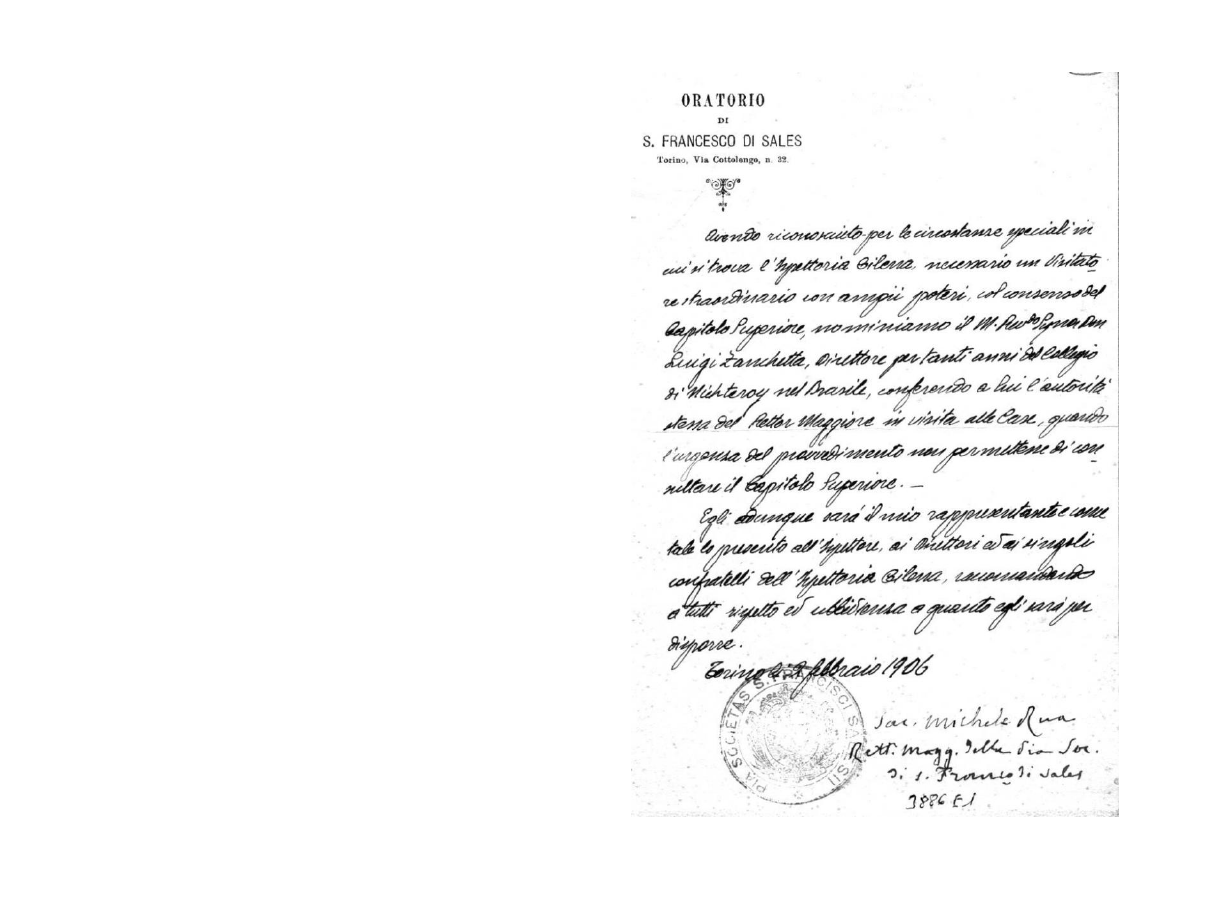 ORATORIO
DI
S. FRANCESCO DI SALES
Torino, Via Cottolengo, n. 32.
Avendo riconosciuto per le circostanze speciali in
cui si trova l'Ispettoria Cilena, necessario un Visitato
re straordinario con ampii poteri, col consenso del
Capitolo Superiore, nominiamo il M. Revdo Signor Don
Luigi Zanchetta, Direttore per tanti anni del Collegio
di Nichteroy nel Brasile, conferendo a lui l'autorità
stessa del Rettor Maggiore in visita alle Case, quando
l'urgenza del provvedimento non permettesse di con
sultare il Capitolo Superiore. —
Egli adunque sarà il mio rappresentante e come
tale lo presento all'Ispettore, ai Direttori ed ai singoli
confratelli dell'Ispettoria Cilena, raccomandando
a tutti rispetto ed ubbidienza a quanto egli sarà per
disporre.
Torino febbraio 1906
PIA SOCIETAS S. FRANCISCI SALESII
Sac. Michele Rua
Rett. Magg. della Pia Soc.
di S. Franco di Sales
3886 E1